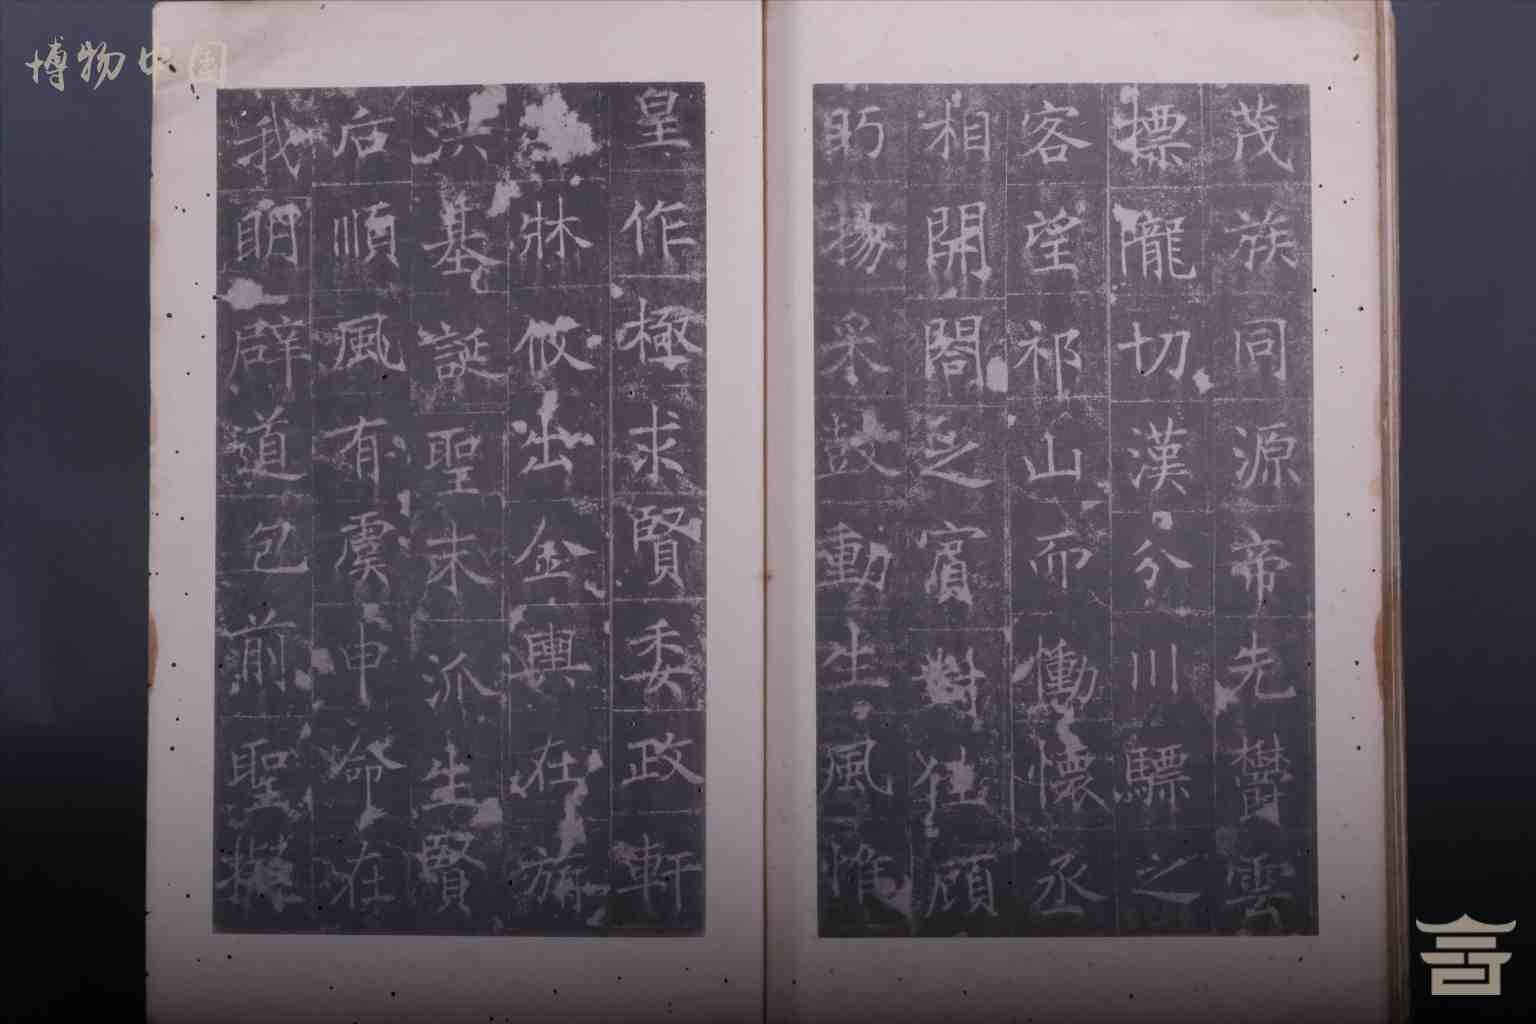 博物中国
茂族同源帝先鬱雲
摽隴切漢分川驃之
客望祁山而慟懷丞
相開閤之賓對往顧
眄揚采鼓動生風惟
皇作極求賢委政軒
牀攸出金輿在旃
洪基誕聖末派生賢
后順風有虞申命在
我明辟道包前聖